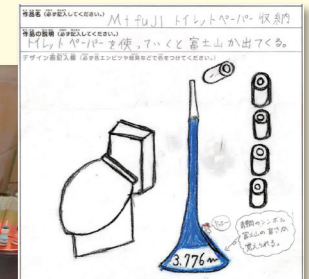 作品名（必ず記入してください。） Mt fuji トイレットペーパー 収納
作品の説明（必ず記入してください。）
トイレットペーパーを使っていくと富士山が出てくる。
デザイン画記入欄（必ず色エンピツや絵具などで色をつけてください。）
3.776m
静岡のシンボル
富士山の高さが
覚えられる。